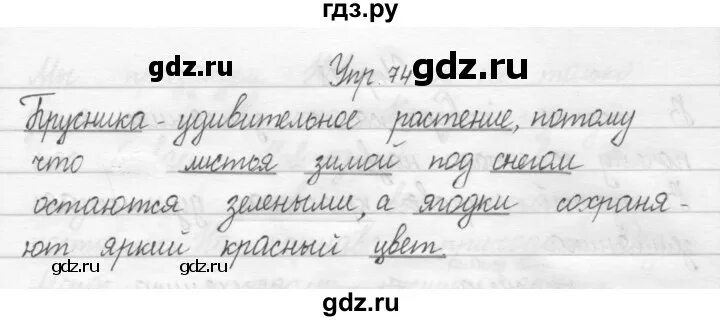 гдз.ру
gdz.ru gdz.ru
Упр. 74
Брусника - удивительное растение, потому
что листья зимой под снегом
остаются зелеными, а ягодки сохраня-
ют яркий красный цвет.
gdz.ru gdz.ru gdz.ru
gdz.ru